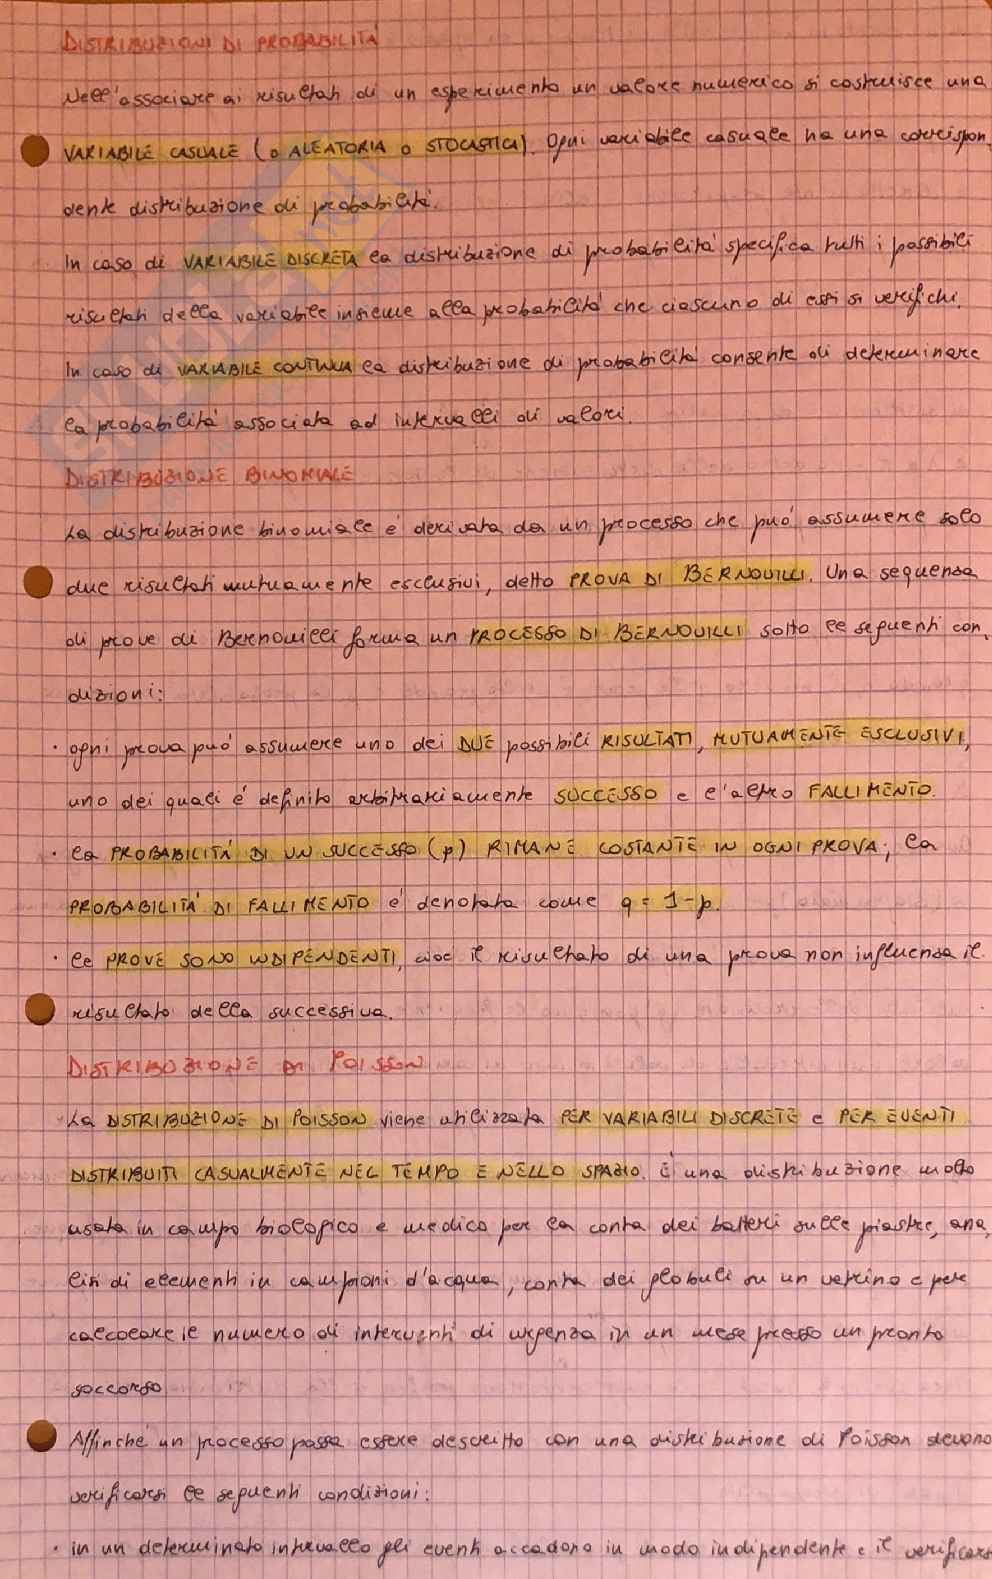 DISTRIBUZIONI DI PROBABILITÁ
Nell'associare ai risultati di un esperimento un valore numerico si costruisce una
VARIABILE CASUALE (o ALEATORIA o STOCASTICA). Ogni variabile casuale ha una corrispon,
dente distribuzione di probabilitá.
In caso di VARIABILE DISCRETA la distribuzione di probabilitá specifica tutti i possibili
risultati della variabile insieme alla probabilitá che ciascuno di essi si verifichi.
In caso di VARIABILE CONTINUA la distribuzione di probabilitá consente di determinare
la probabilitá associata ad intervalli di valori.
DISTRIBUZIONE BINOMIALE
La distribuzione binomiale é derivata da un processo che puó assumere solo
due risultati mutuamente esclusivi, detto PROVA DI BERNOUILLI. Una sequenza
di prove di Bernouilli forma un PROCESSO DI BERNOUILLI sotto le seguenti con,
dizioni:
· ogni prova puó assumere uno dei DUE possibili RISULTATI, MUTUAMENTE ESCLUSIVI,
uno dei quali é definito arbitrariamente SUCCESSO e l'altro FALLIMENTO.
· la PROBABILITÁ DI UN SUCCESSO (p) RIMANE COSTANTE IN OGNI PROVA; la
PROBABILITÁ DI FALLIMENTO é denotata come q = 1-p.
· le PROVE SONO INDIPENDENTI, cioé il risultato di una prova non influenza il
risultato della successiva.
DISTRIBUZIONE DI POISSON
La DISTRIBUZIONE DI POISSON viene utilizzata PER VARIABILI DISCRETE e PER EVENTI
DISTRIBUITI CASUALMENTE NEL TEMPO E NELLO SPAZIO. É una distribuzione molto
usata in campo biologico e medico per la conta dei batteri sulle piastre, ana,
lisi di elementi in campioni d'acqua, conta dei globuli su un vetrino e per
calcolare il numero di interventi di urgenza in un mese presso un pronto
soccorso
Affinché un processo possa essere descritto con una distribuzione di Poisson devono
verificarsi le seguenti condizioni:
· in un determinato intervallo gli eventi accadono in modo indipendente e il verificarsi